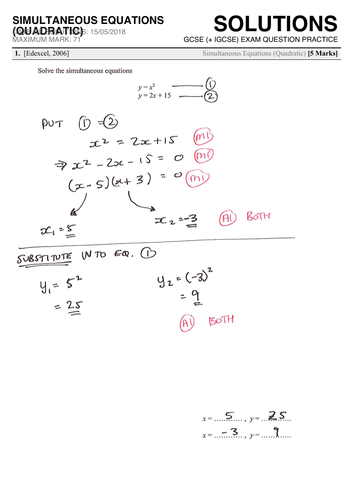 SIMULTANEOUS EQUATIONS
(QUADRATIC)
: 15/05/2018
MAXIMUM MARK: 71
SOLUTIONS
GCSE (+ IGCSE) EXAM QUESTION PRACTICE
1. [Edexcel, 2006] Simultaneous Equations (Quadratic) [5 Marks]
Solve the simultaneous equations
y = x² ①
y = 2x + 15 ②
PUT ① = ②
x² = 2x + 15 M1
⇒ x² - 2x - 15 = 0 M1
(x - 5)(x + 3) = 0 M1
x₁ = 5 x₂ = -3 A1 BOTH
SUBSTITUTE INTO EQ. ①
y₁ = 5² y₂ = (-3)²
= 25 = 9
A1 BOTH
x = 5 , y = 25
x = -3 , y = 9